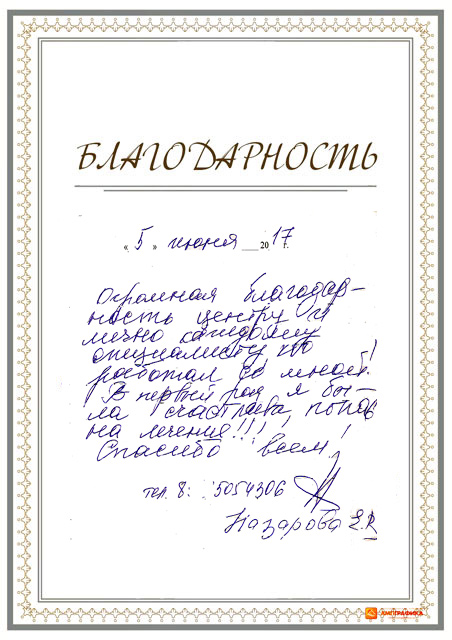 БЛАГОДАРНОСТЬ
« 5 » июня 2017 г.
Огромная благодар-
ность центру и
лично каждому
специалисту, кто
работал со мной!
В первый раз я бы-
ла счастлива, попав
на лечение!!!
Спасибо всем!
тел. 8: 5054306
Назарова Е.К
АМПГРАФИКА